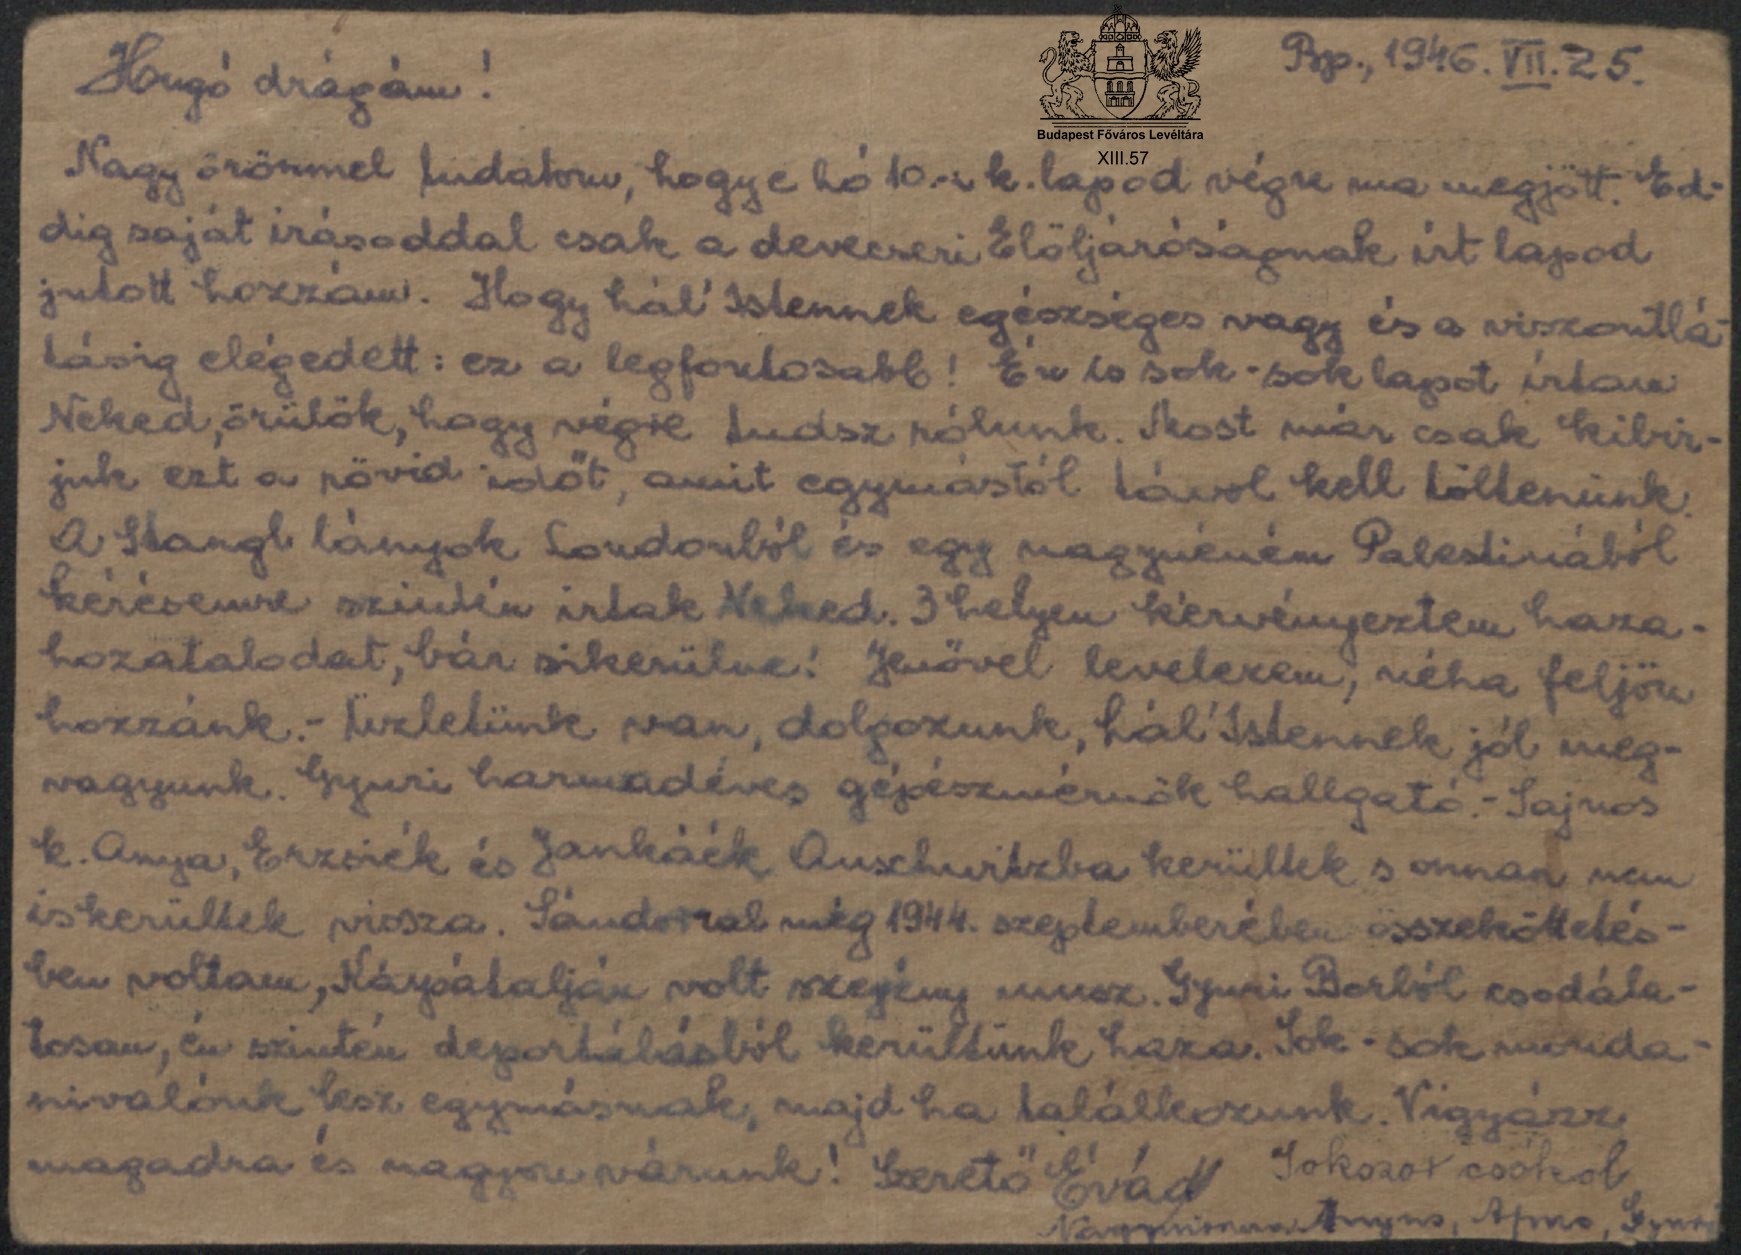 Bp., 1946. VII. 25.
Hugó drágám!
Budapest Főváros Levéltára
XIII.57
Nagy örömmel tudatom, hogy e hó 10.-i k. lapod végre ma megjött. Ed-
dig saját irásoddal csak a devecseri Elöljáróságnak írt lapod
jutott hozzám. Hogy hál' Istennek egészséges vagy és a viszontlá-
tásig elégedett: ez a legfontosabb! Én is sok-sok lapot írtam
Neked, örülök, hogy végre tudsz rólunk. Most már csak kibir-
juk ezt a rövid időt, amit egymástól távol kell töltenünk.
A Stangl lányok Londonból és egy nagynéném Palestinából
kérésemre szintén irtak Neked. 3 helyen kérvényeztem haza-
hozatalodat, bár sikerülne! Jenővel levelezem, néha feljön
hozzánk.- Üzletünk van, dolgozunk, hál' Istennek jól meg-
vagyunk. Gyuri harmadéves gépészmérnök hallgató.- Sajnos
k. Anya, Erzsiék és Jankáék Auschwitzba kerültek s onnan nem
is kerültek vissza. Sándorral még 1944. szeptemberében összeköttetés-
ben voltam, Kárpátalján volt szegény musz. Gyuri Borból csodála-
tosan, én szintén deportálásból kerültünk haza. Sok-sok monda-
nivalónk lesz egymásnak, majd ha találkozunk. Vigyázz
magadra és nagyon várunk! Szerető Évád
Sokszor csókol
Anyus, Apus, Gyuri